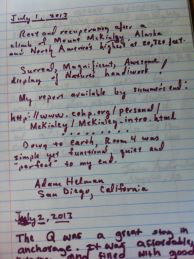 July 1, 2013
Rest and recuperation after a
climb of Mount McKinley, Alaska
and North America's highest at 20,320 feet.
Surreal, Magnificent, Awesome
display of Nature's handiwork.
My report available by summers end:
http://www.cohp.org/personal/
McKinley/McKinley-intro.html
Down to Earth, Room 4 was
simple yet functional, quiet and
perfect to my end.
Adam Helman
San Diego, California
July 2, 2013
The Q was a great stay in
anchorage. It was affordable,
and filled with good